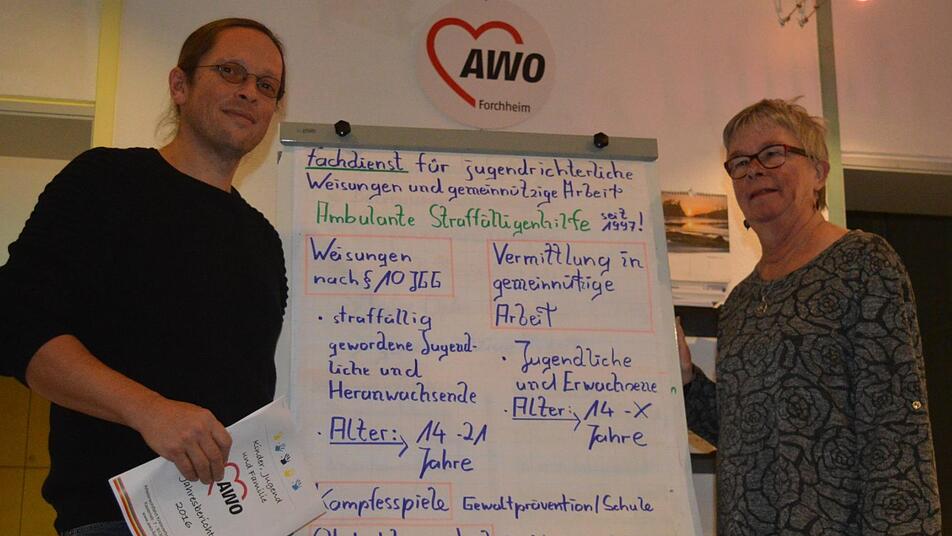 AWO
Forchheim
Fachdienst für jugendrichterliche
Weisungen und gemeinnützige Arbeit
Ambulante Straffälligenhilfe seit 1997!
Weisungen
nach § 10 JGG
• straffällig
gewordene Jugend-
liche und
Heranwachsende
• Alter: 14-21
Jahre
Vermittlung in
gemeinnützige
Arbeit
• Jugendliche
und Erwachsene
• Alter: 14-X
Jahre
Kampfesspiele Gewaltprävention/Schule
Kinder, Jugend
und Familie
AWO
Jahresbericht
2016